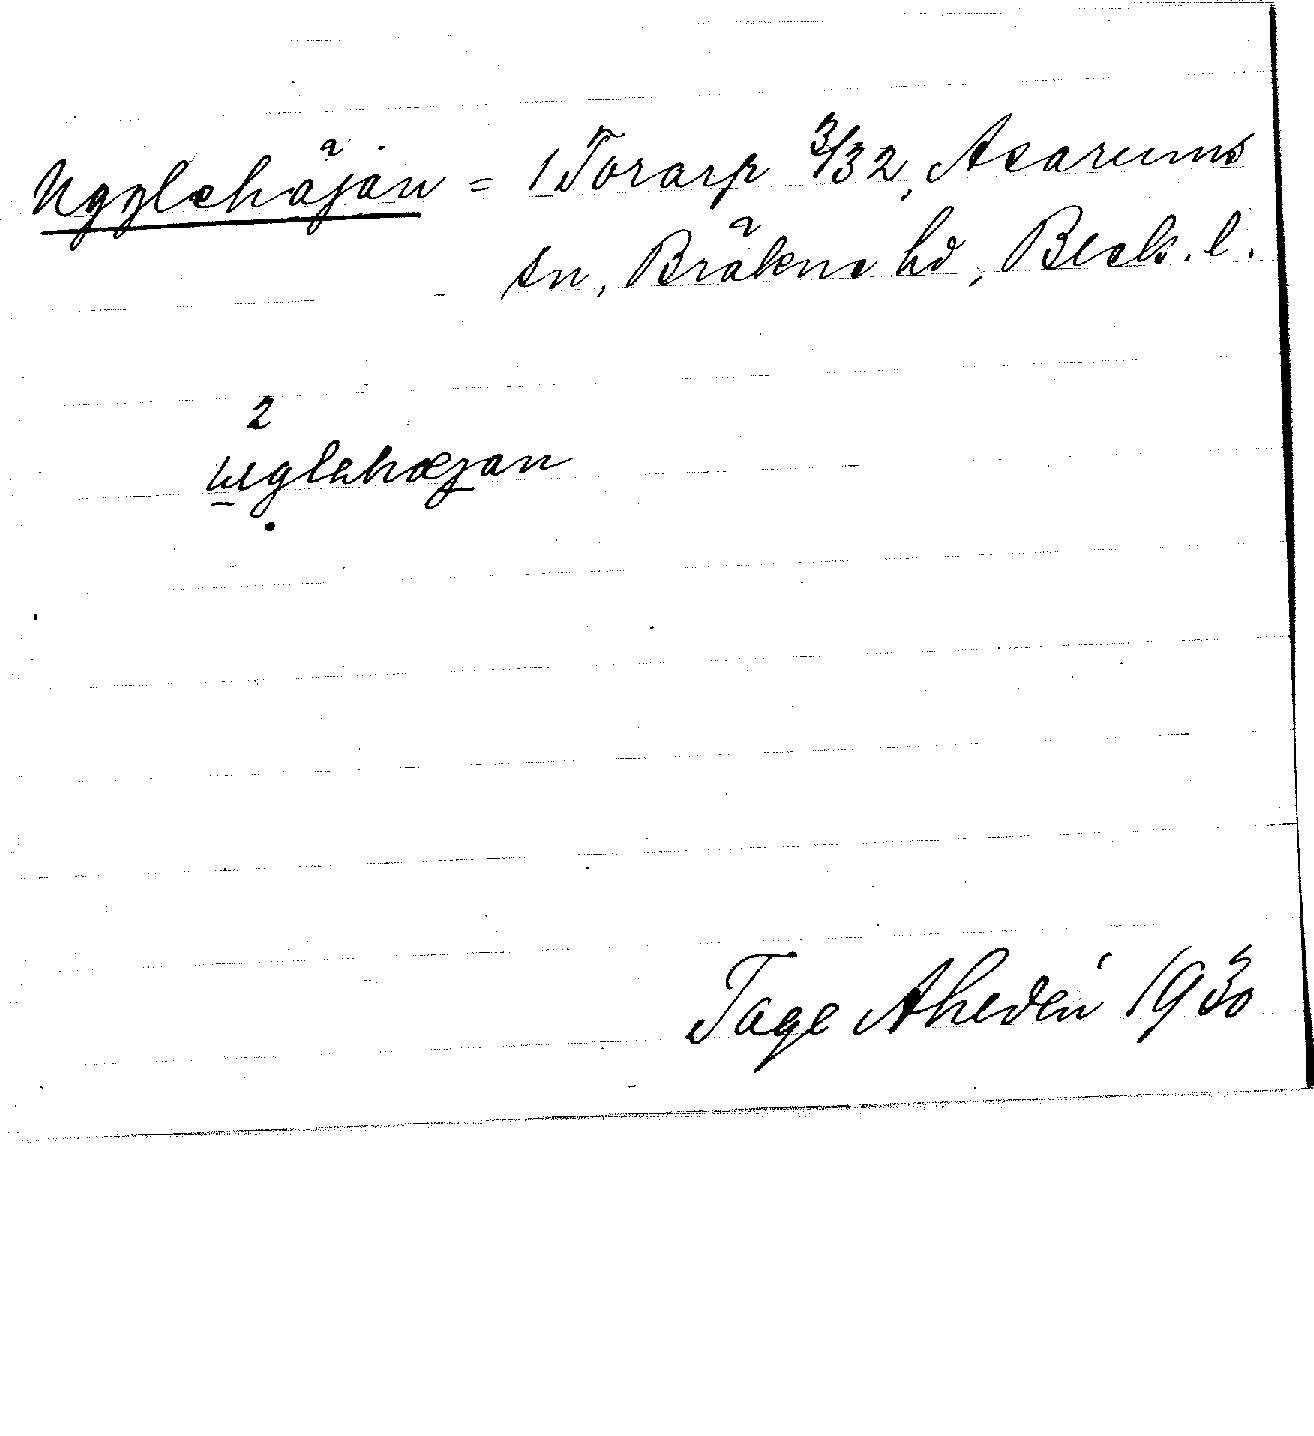 Ugglehäjan = 1 Torarp 3/32, Asarums
sn, Bräkne hd, Blek. l.
2
uglehæjan
Tage Ahedén 1930